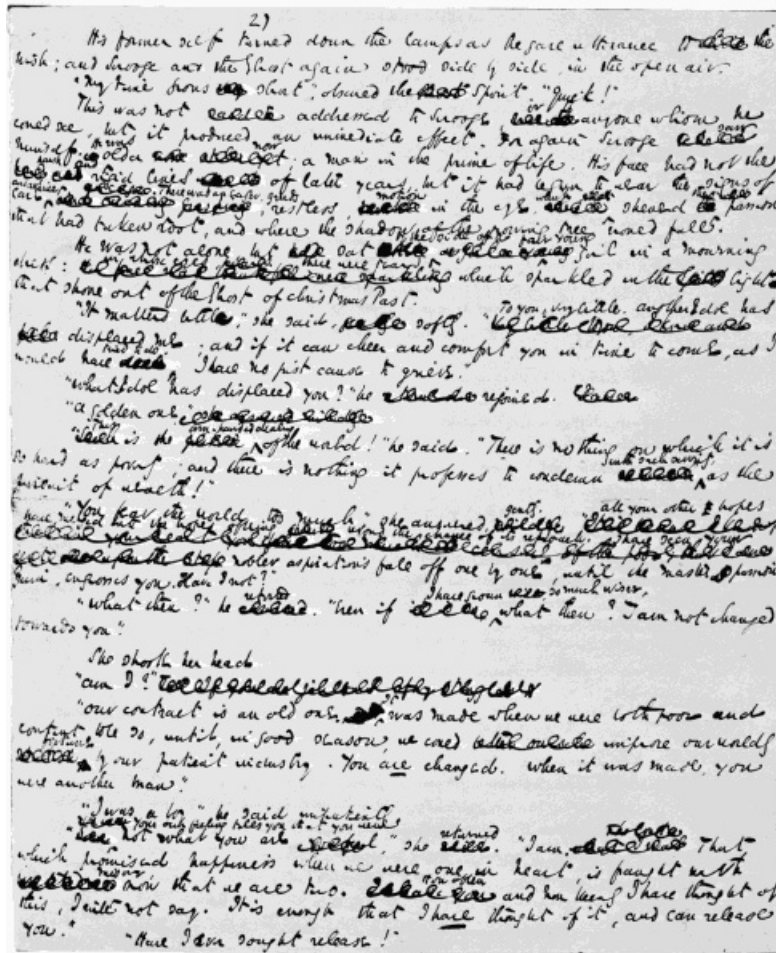 29
His former self turned down the lamps as he gave utterance to the
wish; and Scrooge and the Ghost again stood side by side in the open air.
"My time grows short," observed the Spirit. "Quick!"
This was not addressed to Scrooge or to anyone whom he
could see, but it produced an immediate effect. For again Scrooge saw
himself. He was older now; a man in the prime of life. His face had not the
harsh and rigid lines of later years, but it had begun to wear the signs of
care and avarice. There was an eager, greedy, restless, motion in the eye, which shewed the passion
that had taken root, and where the shadow of the growing tree would fall.
He was not alone, but sat by the side of a fair young girl in a mourning
dress: in whose eyes there were tears, which sparkled in the light
that shone out of the Ghost of Christmas Past.
"It matters little," she said, softly. "To you, very little. Another Idol has
displaced me; and if it can cheer and comfort you in time to come, as I
would have tried to do, I have no just cause to grieve."
"What Idol has displaced you?" he rejoined.
"A golden one."
"This is the even-handed dealing of the world!" he said. "There is nothing on which it is
so hard as poverty; and there is nothing it professes to condemn with such severity as the
pursuit of wealth!"
"You fear the world too much," she answered, gently. "All your other hopes
have merged into the hope of being beyond the chance of its reproach. I have seen your
nobler aspirations fall off one by one, until the master passion
Gain, engrosses you. Have I not?"
"What then?" he retorted. "Even if I have grown so much wiser, what then? I am not changed
towards you."
She shook her head
"Am I?"
"Our contract is an old one. It was made when we were both poor and
content to be so, until, in good season, we could improve our worldly
fortune by our patient industry. You are changed. When it was made, you
were another man."
"I was a boy," he said impatiently
"Your own feeling tells you that you were not what you are," she returned. "I am. That
which promised happiness when we were one in heart, is fraught with
misery now that we are two. How often and how keenly I have thought of
this, I will not say. It is enough that I have thought of it, and can release
you."
"Have I ever sought release!"